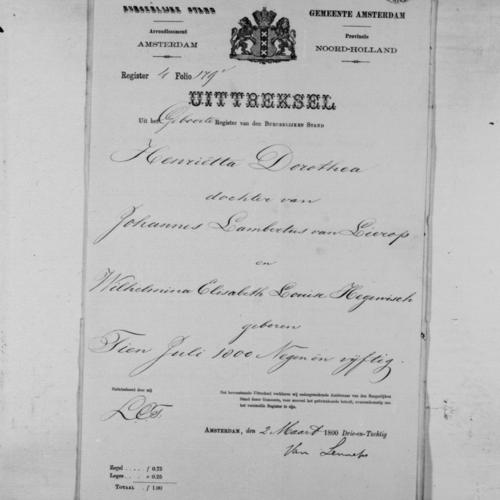 BURGERLIJKE STAND
Arrondissement
AMSTERDAM
GEMEENTE AMSTERDAM
Provincie
NOORD-HOLLAND
Register 4 Folio 179
UITTREKSEL
Uit het Geboorte Register van den BURGERLIJKEN STAND
Henriëtta Dorothea
dochter van
Johannes Lambertus van Lierop
en
Wilhelmina Elisabeth Louise Hegewisch
geboren
Tien Juli 1800 Negen en vijftig.
Dat bovenstaande Uittreksel verklaren wij ondergeteekende Ambtenaar van den Burgerlijken
Stand dezer Gemeente, voor zooveel het geboekstaafde betreft, overeenkomstig met
het vermelde Register te zijn.
AMSTERDAM, den 2 Maart 1800 Drie-en-Tachtig
Van Lennep
Zegel . . . . ƒ 0.75
Leges . . . . „ 0.25
TOTAAL . . ƒ 1.00